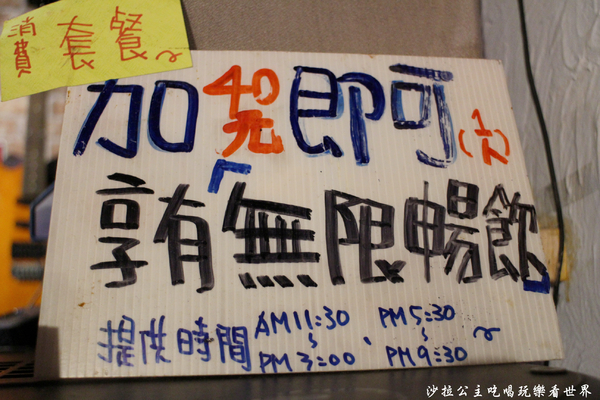 消費套餐~
加40元即可(1人)
享有「無限暢飲」
提供時間 AM11:30~PM3:00、PM5:30~PM9:30~
沙拉公主吃喝玩樂看世界